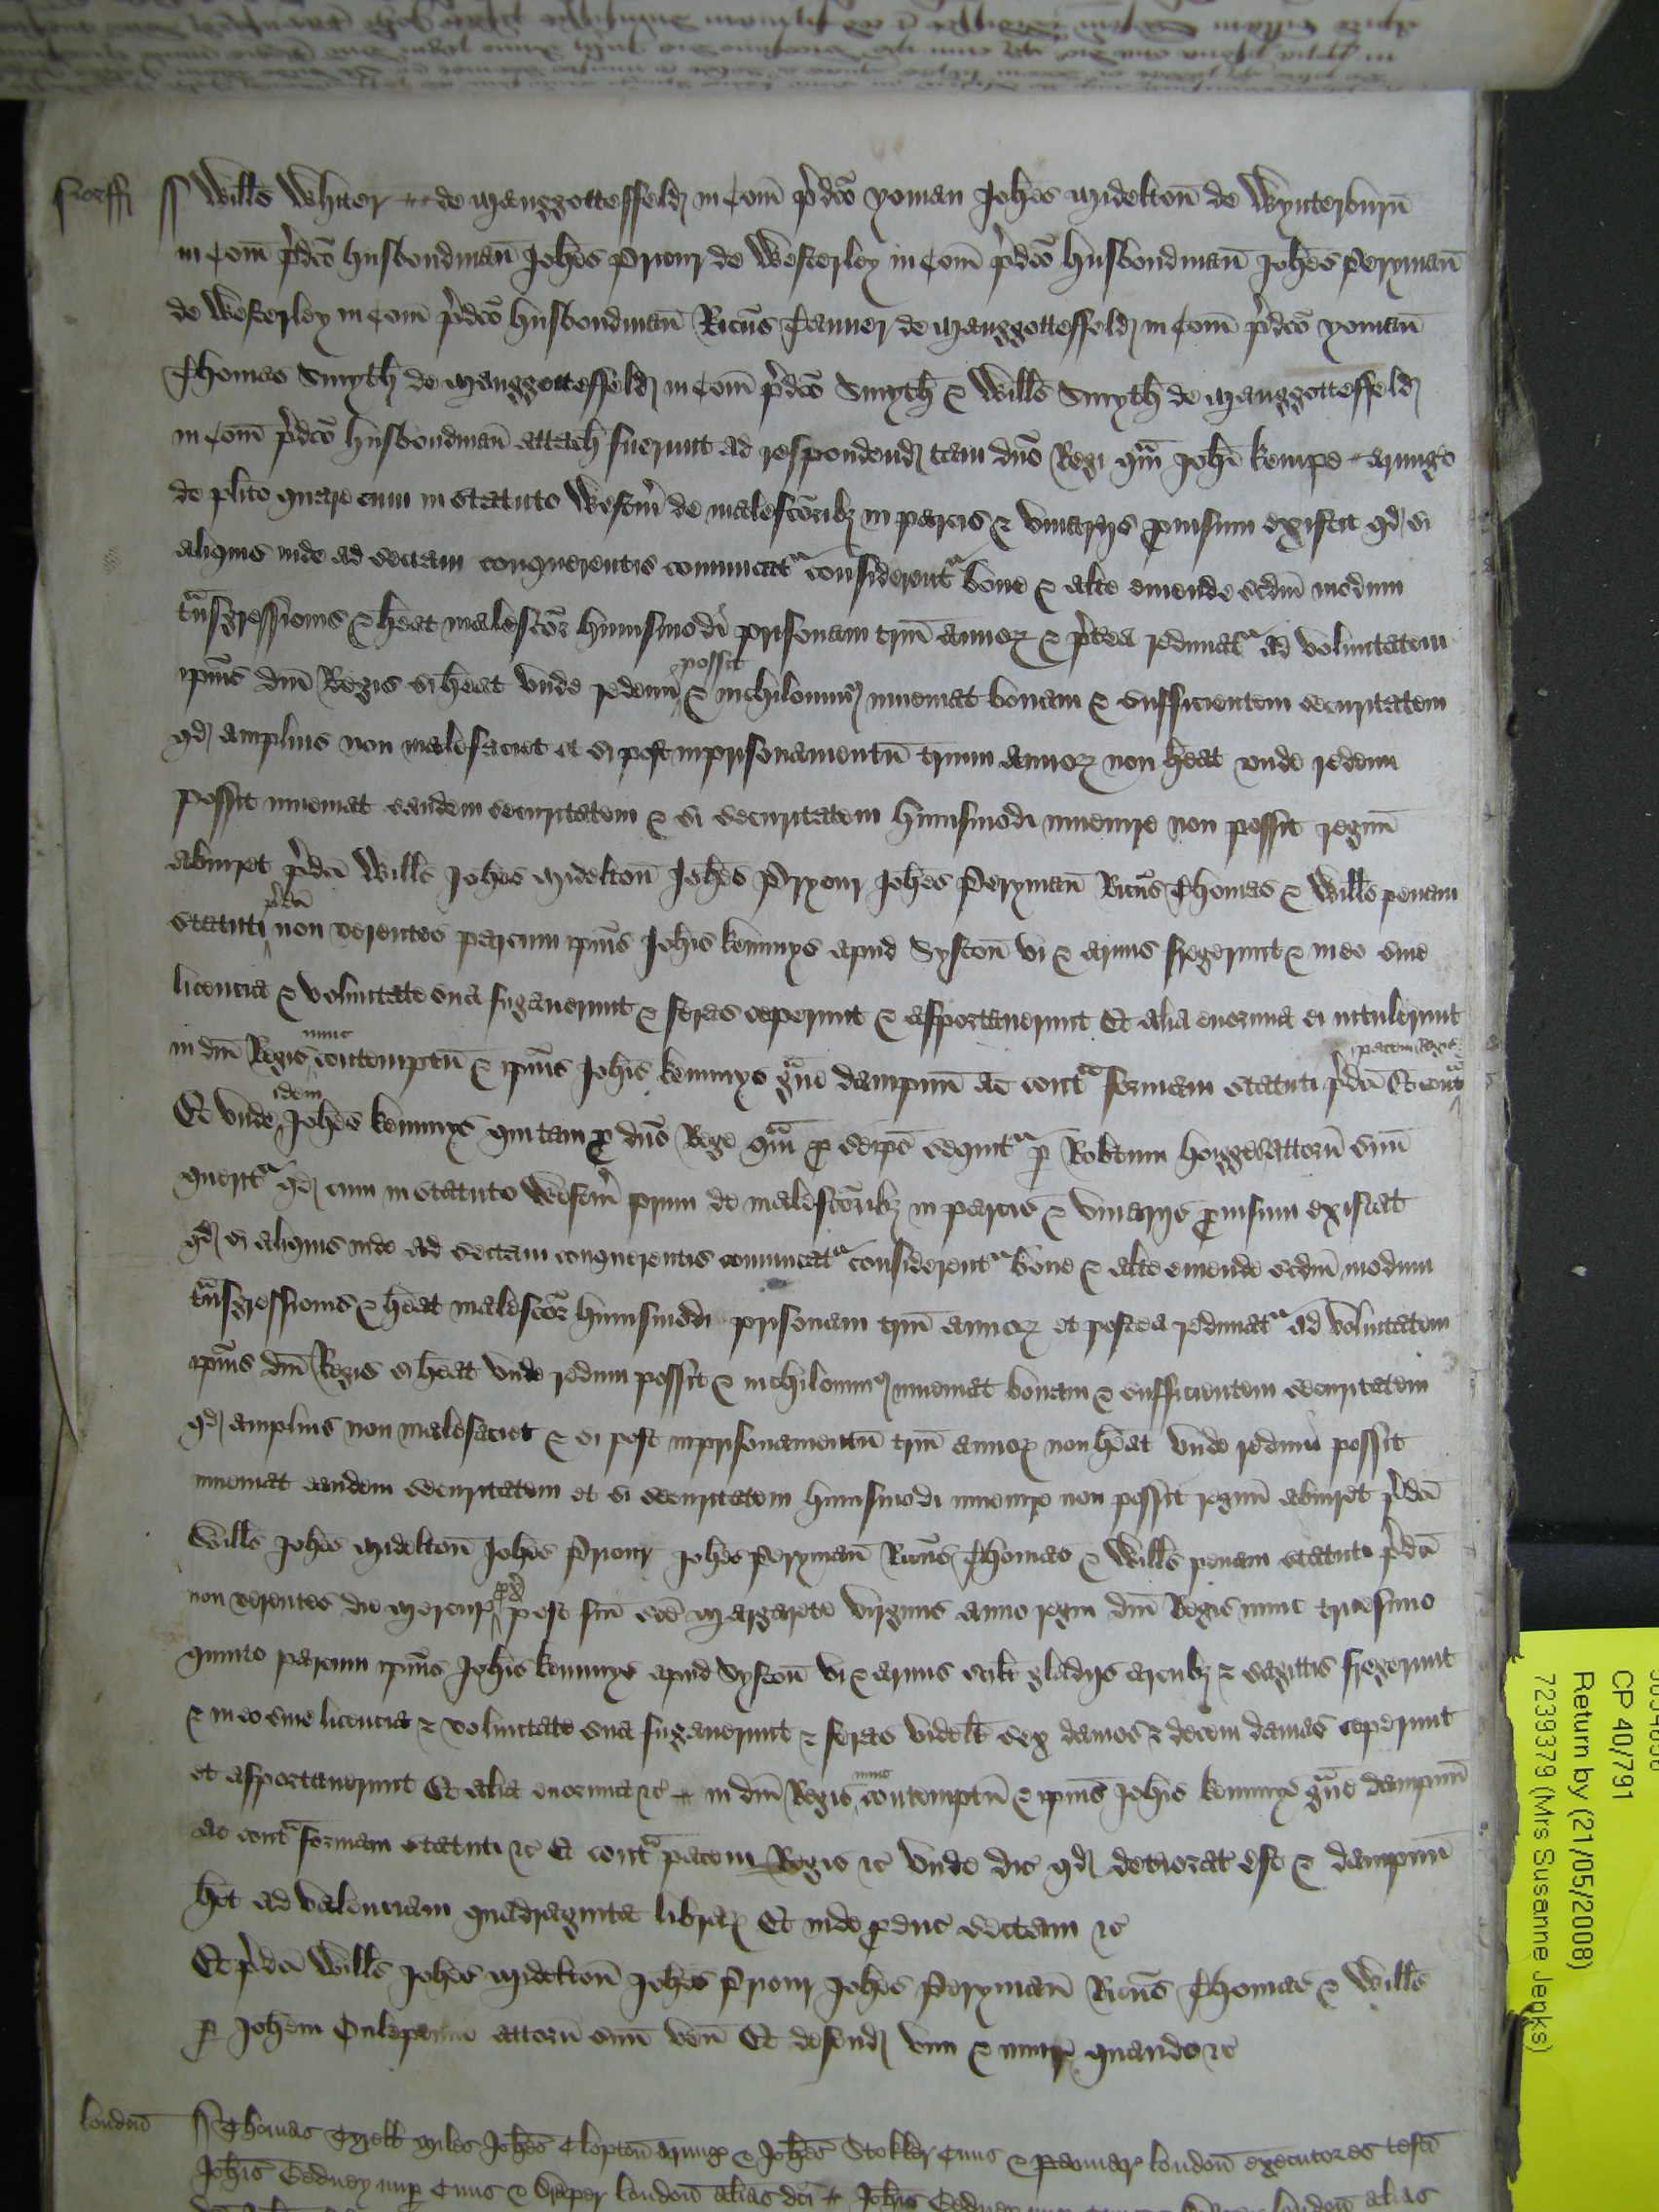 Wills Whiter de Manggottesfeld in Com p'dco yoman Johes Midelton de Wynterburn
in Com p'dco husbondman Johes Priour de Westerley in Com p'dco husbondman Johes Peryman
de Westerley in Com p'dco husbondman Ricus Tanner de Manggottesfeld in Com p'dco yoman
Thomas Smyth de Manggottesfeld in Com p'dco Smyth & Wills Smyth de Manggottesfeld
in Com p'dco husbondman attach fuerunt ad respondend tam dno Regi qam Johi
de plito quare cum in statuto Westm de malefcoribz in parcis & vivarijs pvisum existit qd si
aliquis inde ad sectam conquerentis convincatr considerentr bone & alte emende scdm modum
tansgressionis & heat malefcor huiusmodi prisonam trin annor & p'tea redimatr ad voluntatem
ipius dni Regis si heat unde redemi possit & nichilomin inveniat bonam & sufficientem securitatem
qd amplius non malefaciet et si post inprisonamentu trium annor non heat unde redemi
possit inveniat eandem securitatem & si securitatem huiusmodi invenire non possit regnu
abiuret p'dci Wills Johes Midelton Johes Pryour Johes Peryman Ricus Thomas & Wills penam
statuti p'dci non verentes parcum ipius Johis Kemmys apud Syston vi & armis fregerunt & in eo sine
licencia & voluntate sua fugaverunt & feras ceperunt & asportaverunt Et alia enormia ei intulerunt
in dni Regis nunc contemptu & ipius Johis Kemmys gave dampnum ac conta formam statuti p'dci & conta pacem Regis
Et unde idem Johes Kemmys qui tam p dno Rege qam p seipo sequitr p Robtum attorn suu
queritr qd cum in statuto Westm primo de malefcoribz in parcis & vivarijs pvisum existat
qd si aliquis inde ad sectam conquerentis convincatr considerentr bone & alte emende scdm modum
tansgressionis & heat malefcor huiusmodi prisonam trin annor et postea redimatr ad voluntatem
ipius dni Regis si heat unde redimi possit & nichilomin inveniat bonam & sufficientem securitatem
qd amplius non malefaciet & si post inprisonamentu trin annor non heat unde redimi possit
inveniat eandem securitatem et si securitatem huiusmodi invenire non possit regnu abiuret p'dci
Wills Johes Midelton Johes Priour Johes Peryman Ricus Thomas & Wills penam statuti p'dci
non verentes die Mercur px post fm sce Margarete virginis anno regni dni Regis nunc tricesimo
quinto parcum ipius Johis Kemmys apud Syston vi & armis scilt gladijs arcubz & sagittis fregerunt
& in eo sine licencia & voluntate sua fugaverunt & feras videlt sex damos & decem damas ceperunt
et asportaverunt Et alia enormia &c in dni Regis nunc contemptu & ipius Johis Kemmys gave dampnum
ac conta formam statuti &c Et conta pacem Regis &c unde dic qd deteriorat est & dampnum
het ad valenciam quadraginta librar Et inde pduc sectam &c
Et p'dci Wills Johes Midelton Johes Priour Johes Peryman Ricus Thomas & Wills
p Johem attorn suu ven Et defend vim & iniur quando &c
London Thomas Tyrell Miles Johes Clopton Armig & Johes Stokker Civis & London executores testi
Johis Gedney nup Civis & Draper London alias dci Johis Gedney
CP 40/791
Return by (21/05/2008)
7239379 (Mrs Susanne Jenks)